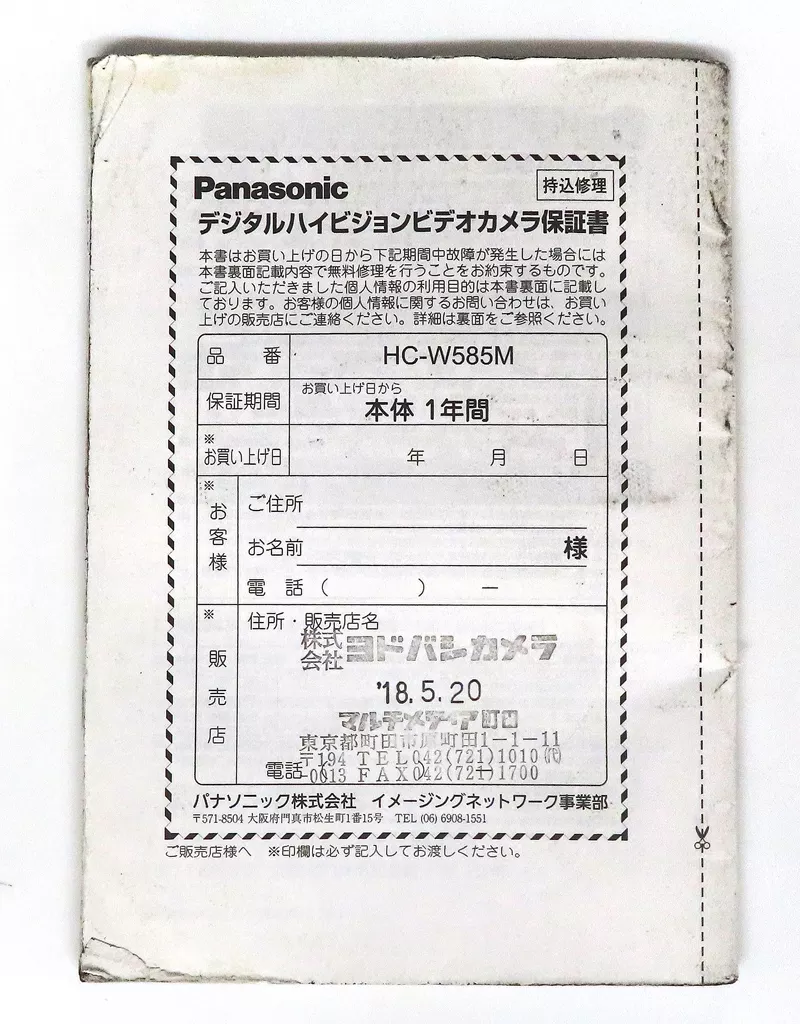 Panasonic
持込修理
デジタルハイビジョンビデオカメラ保証書
本書はお買い上げの日から下記期間中故障が発生した場合には
本書裏面記載内容で無料修理を行うことをお約束するものです。
ご記入いただきました個人情報の利用目的は本書裏面に記載し
ております。お客様の個人情報に関するお問い合わせは、お買い
上げの販売店にご連絡ください。詳細は裏面をご参照ください。
品 番 HC-W585M
保証期間 お買い上げ日から
本体 1年間
※
お買い上げ日 年 月 日
※
お客様
ご住所
お名前 様
電 話 ( ) ー
※
販売店
住所・販売店名
株式会社 ヨドバシカメラ
'18.5.20
マルチメディア町田
東京都町田市原町田1-1-11
〒194 TEL042(721)1010(代)
電話
-0013 FAX042(721)1700
パナソニック株式会社 イメージングネットワーク事業部
〒571-8504 大阪府門真市松生町1番15号 TEL (06) 6908-1551
ご販売店様へ ※印欄は必ず記入してお渡しください。